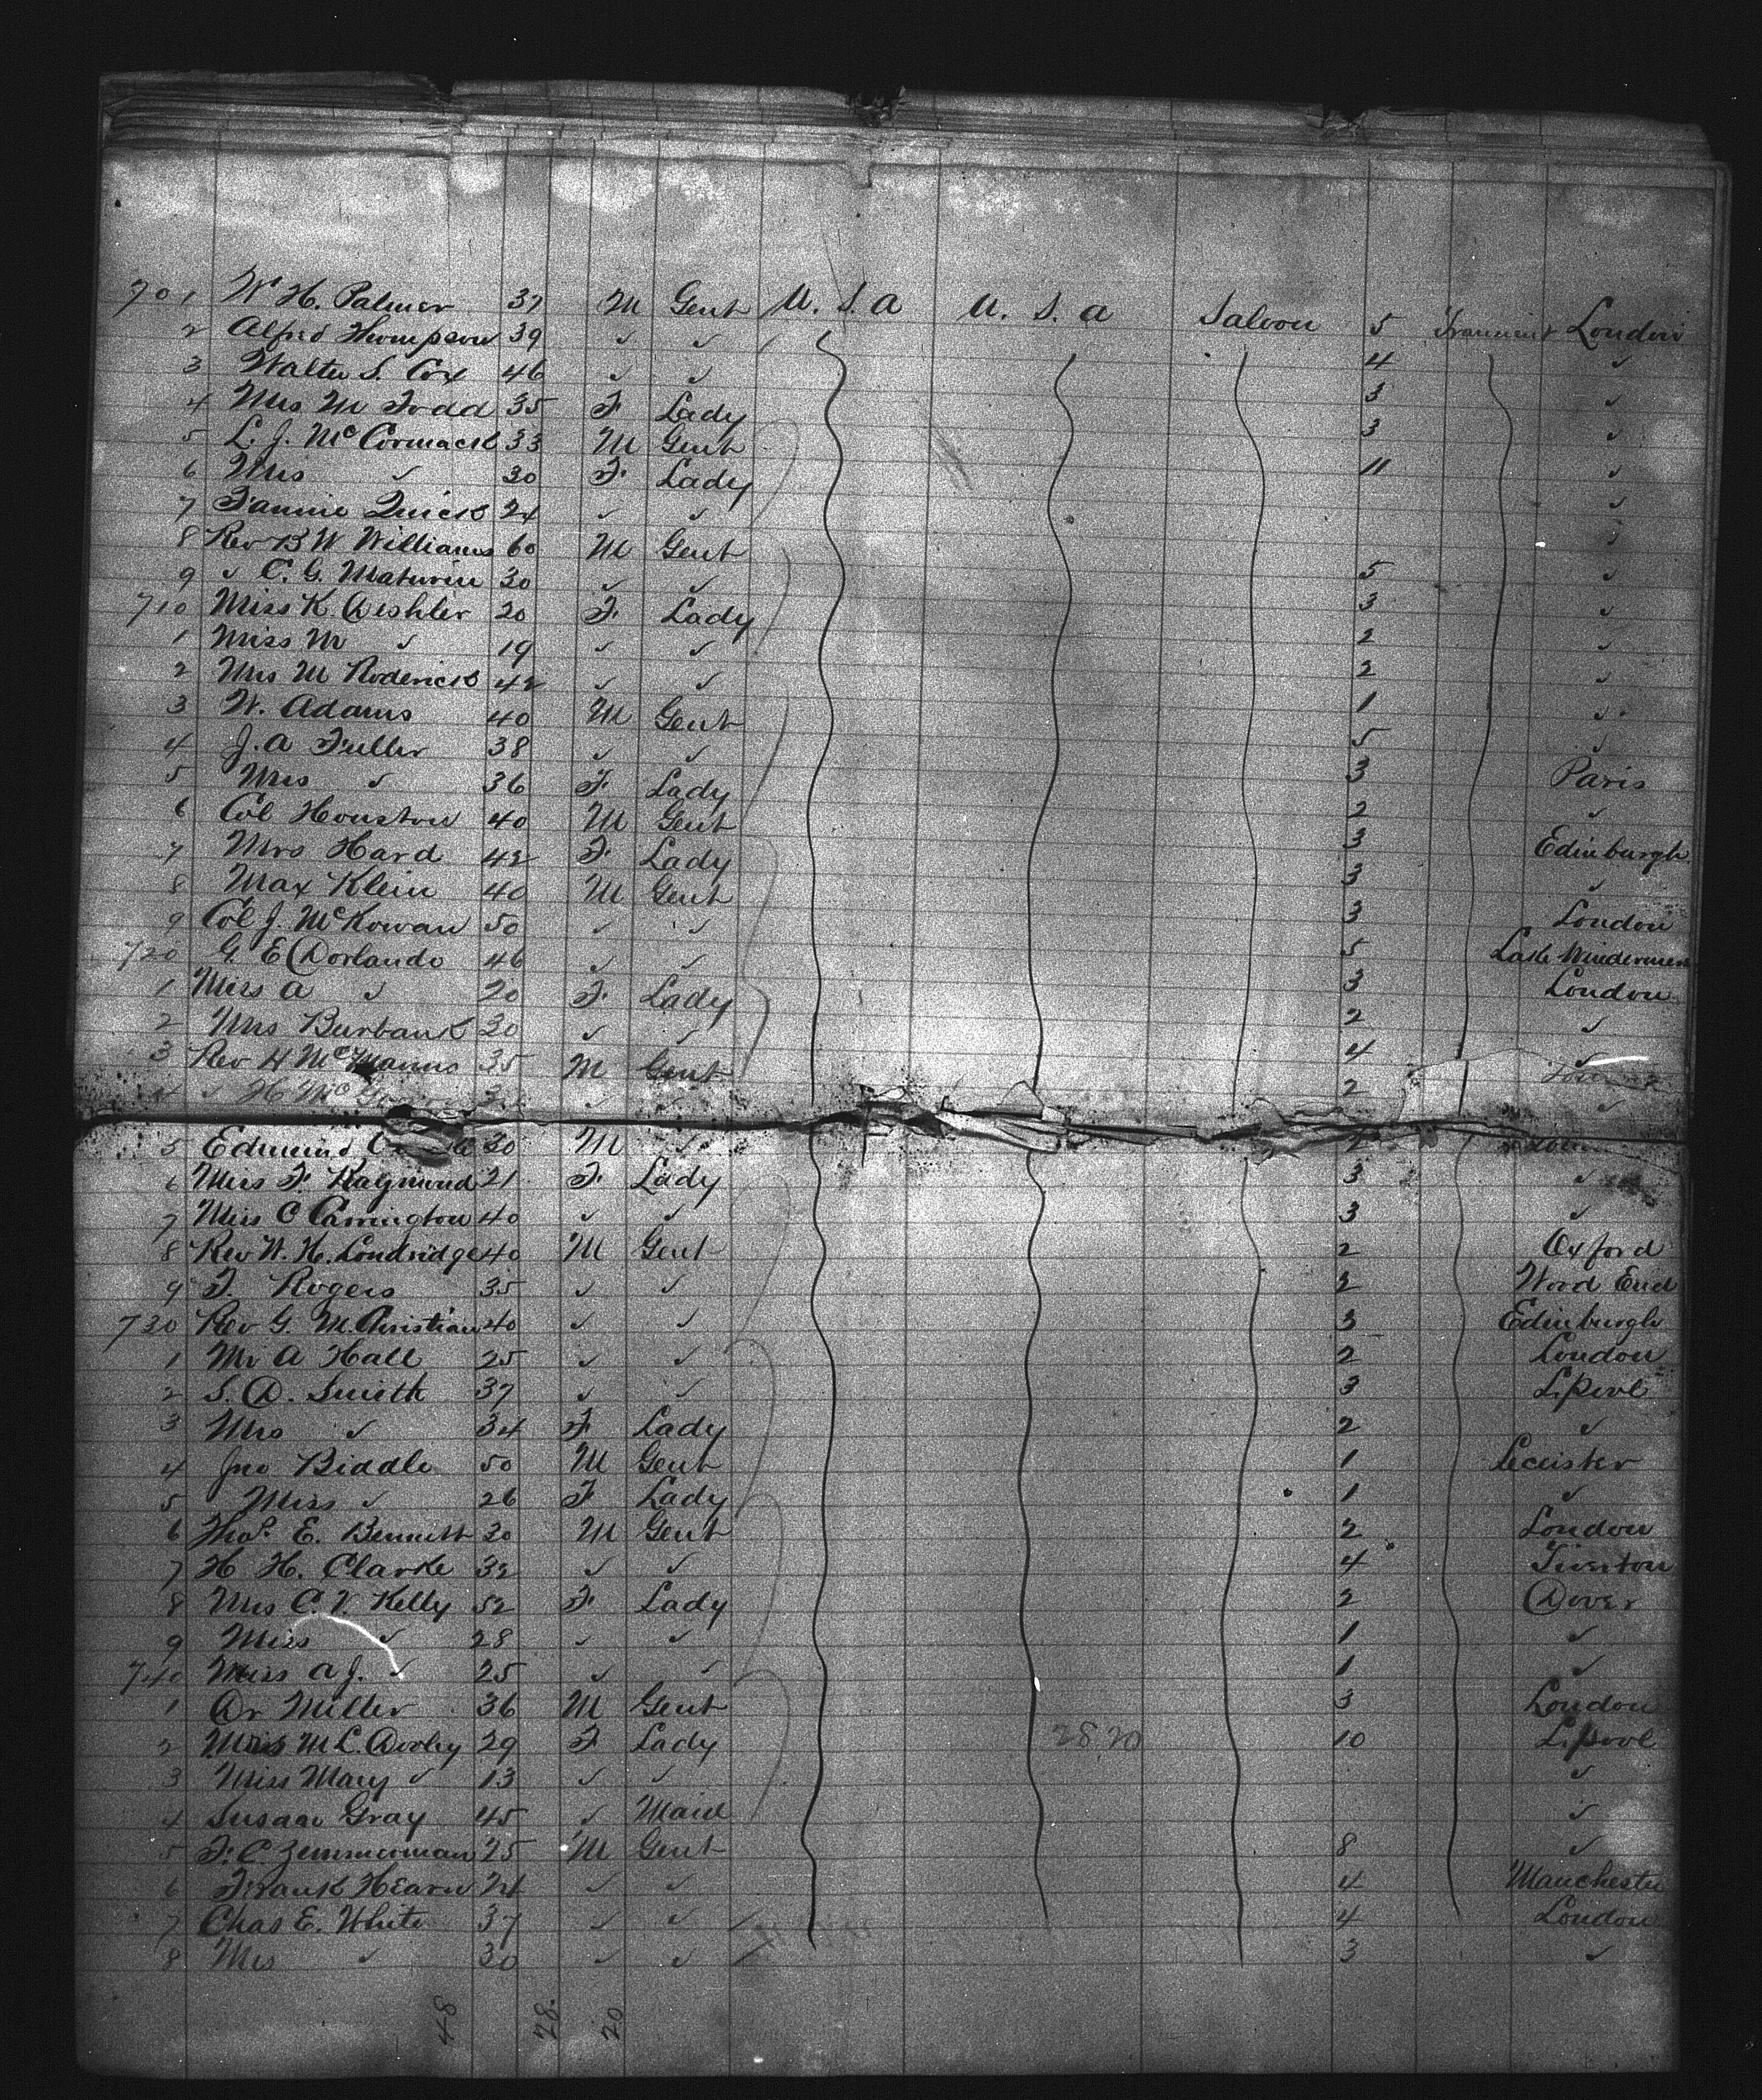 701 W. H. Palmer 37 M Gent U. S. A U. S. A Saloon 5 Transient London
2 Alfred Thompson 39 ✓ ✓ 4 ✓
3 Walter S. Cox 46 ✓ ✓ 3 ✓
4 Mrs M Todd 35 F. Lady 3 ✓
5 L. J. McCormack 33 M Gent 11 ✓
6 Mrs ✓ 30 F. Lady ✓
7 Fannie Quick 24 ✓ ✓ ✓
8 Rev B W Williams 60 M Gent 5 ✓
9 ✓ C. G. Maturin 30 ✓ ✓ 3 ✓
710 Miss K Deshler 20 F. Lady 2 ✓
1 Miss M ✓ 19 ✓ ✓ 2 ✓
2 Mrs M Roderick 42 ✓ ✓ 1 ✓
3 W. Adams 40 M Gent 5 ✓
4 J. A Fuller 38 ✓ ✓ 3 Paris
5 Mrs ✓ 36 F. Lady 2 ✓
6 Col Houston 40 M Gent 3 Edinburgh
7 Mrs Hard 42 F. Lady 3 ✓
8 Max Klein 40 M Gent 3 London
9 Col J. McKowan 50 ✓ ✓ 5 Lake Windermere
720 G. E Dorlando 46 ✓ ✓ 3 London
1 Miss A ✓ 20 F. Lady 2 ✓
2 Mrs Burbank 30 ✓ ✓ 4 ✓
3 Rev H McManus 35 M Gent 2
4 ✓ H Mc ✓ ✓ ✓
5 Edmund 30 M ✓
6 Miss F. Raymond 21 F. Lady 3 ✓
7 Miss C Carrington 40 ✓ ✓ 3 ✓
8 Rev W. H. Londridge 40 M Gent 2 Oxford
9 F. Rogers 35 ✓ ✓ 2 Wood End
730 Rev G. M. Christian 40 ✓ ✓ 3 Edinburgh
1 Mr A Hall 25 ✓ ✓ 2 London
2 S. D. Smith 37 ✓ ✓ 3 L.pool
3 Mrs ✓ 34 F Lady 2 ✓
4 Jno Biddle 50 M Gent 1 Leceister
5 Miss ✓ 26 F Lady 1 ✓
6 Thos. E. Bennett 30 M Gent 2 London
7 H H. Clarke 32 ✓ ✓ 4 Tiverton
8 Mrs C. V Kelly 52 F. Lady 2 Dover
9 Miss ✓ 28 ✓ ✓ 1 ✓
740 Miss A J. ✓ 25 ✓ ✓ 1 ✓
1 Dr Miller 36 M Gent 3 London
2 Miss M L. Dooley 29 F Lady 28 20 10 L.pool
3 Miss Mary ✓ 13 ✓ ✓ ✓
4 Susan Gray 45 ✓ Maid ✓
5 F. C. Zimmerman 25 M Gent 8 ✓
6 Frank Hearn 24 ✓ ✓ 4 Manchester
7 Chas E. White 37 ✓ ✓ 4 London
8 Mrs ✓ 30 ✓ ✓ 3 ✓
48 28. 20